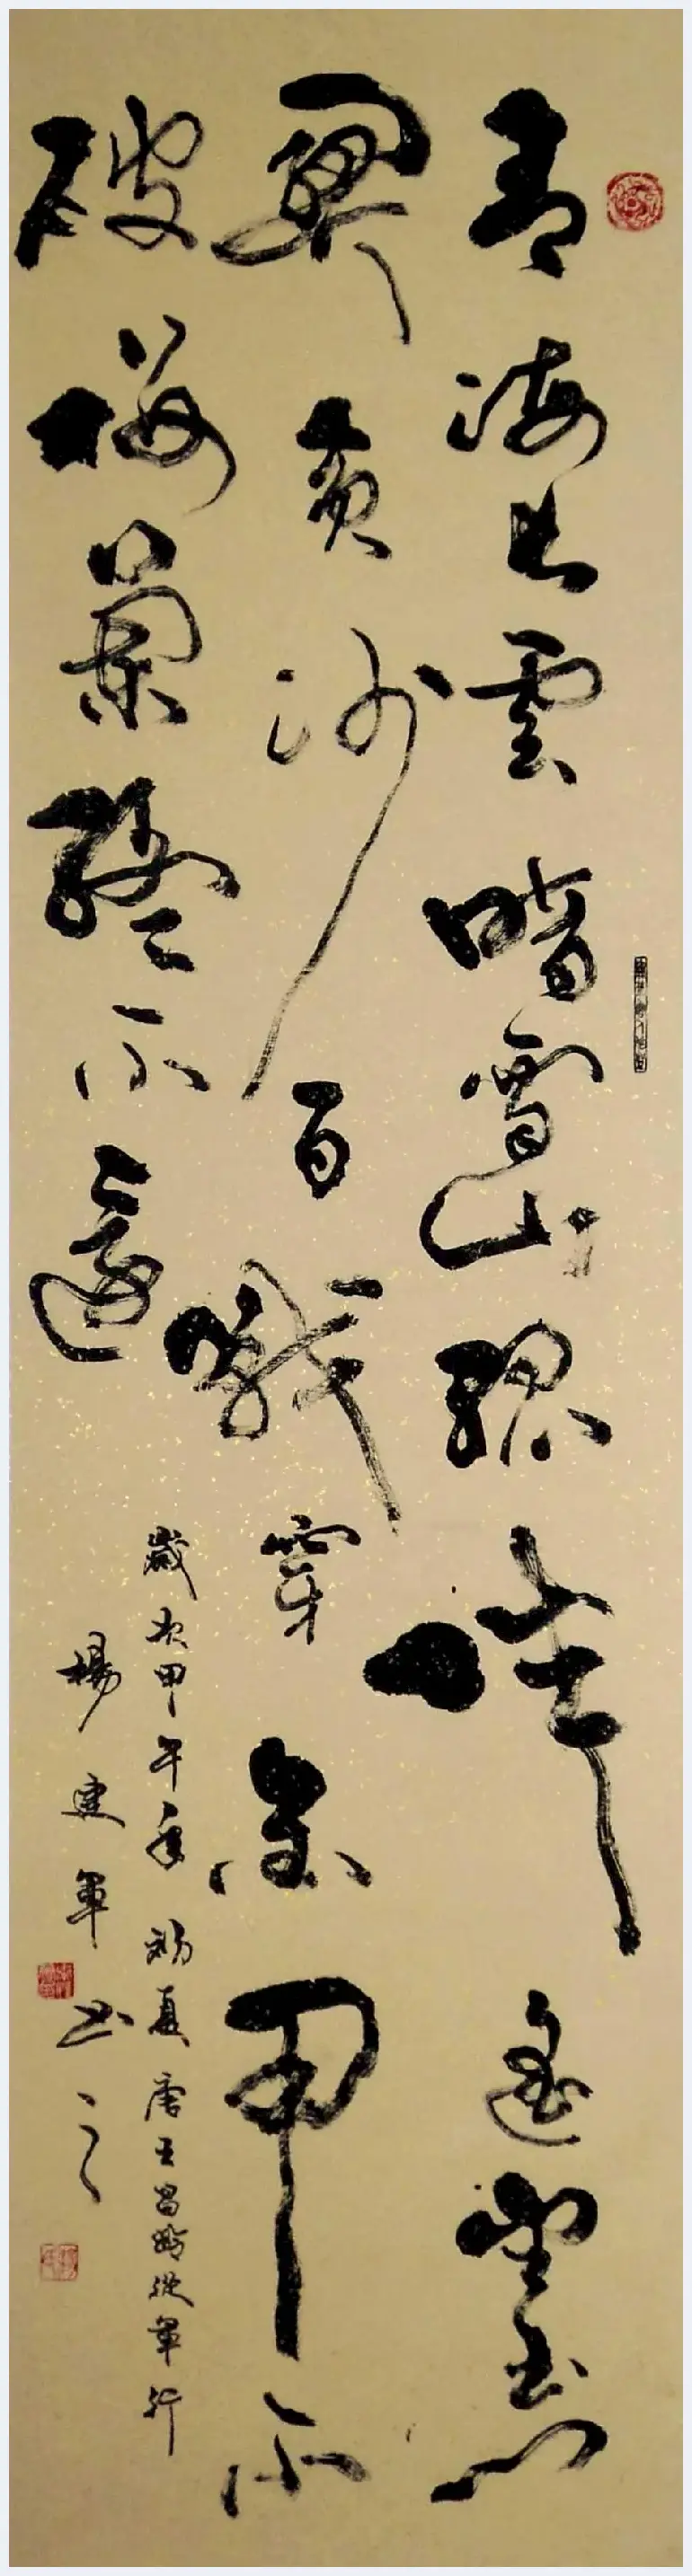 青海長雲暗雪山孤城遙望玉門
關黄沙百戰穿金甲不
破樓蘭終不還
歲次甲午年初夏唐王昌齡從軍行
楊建軍书之